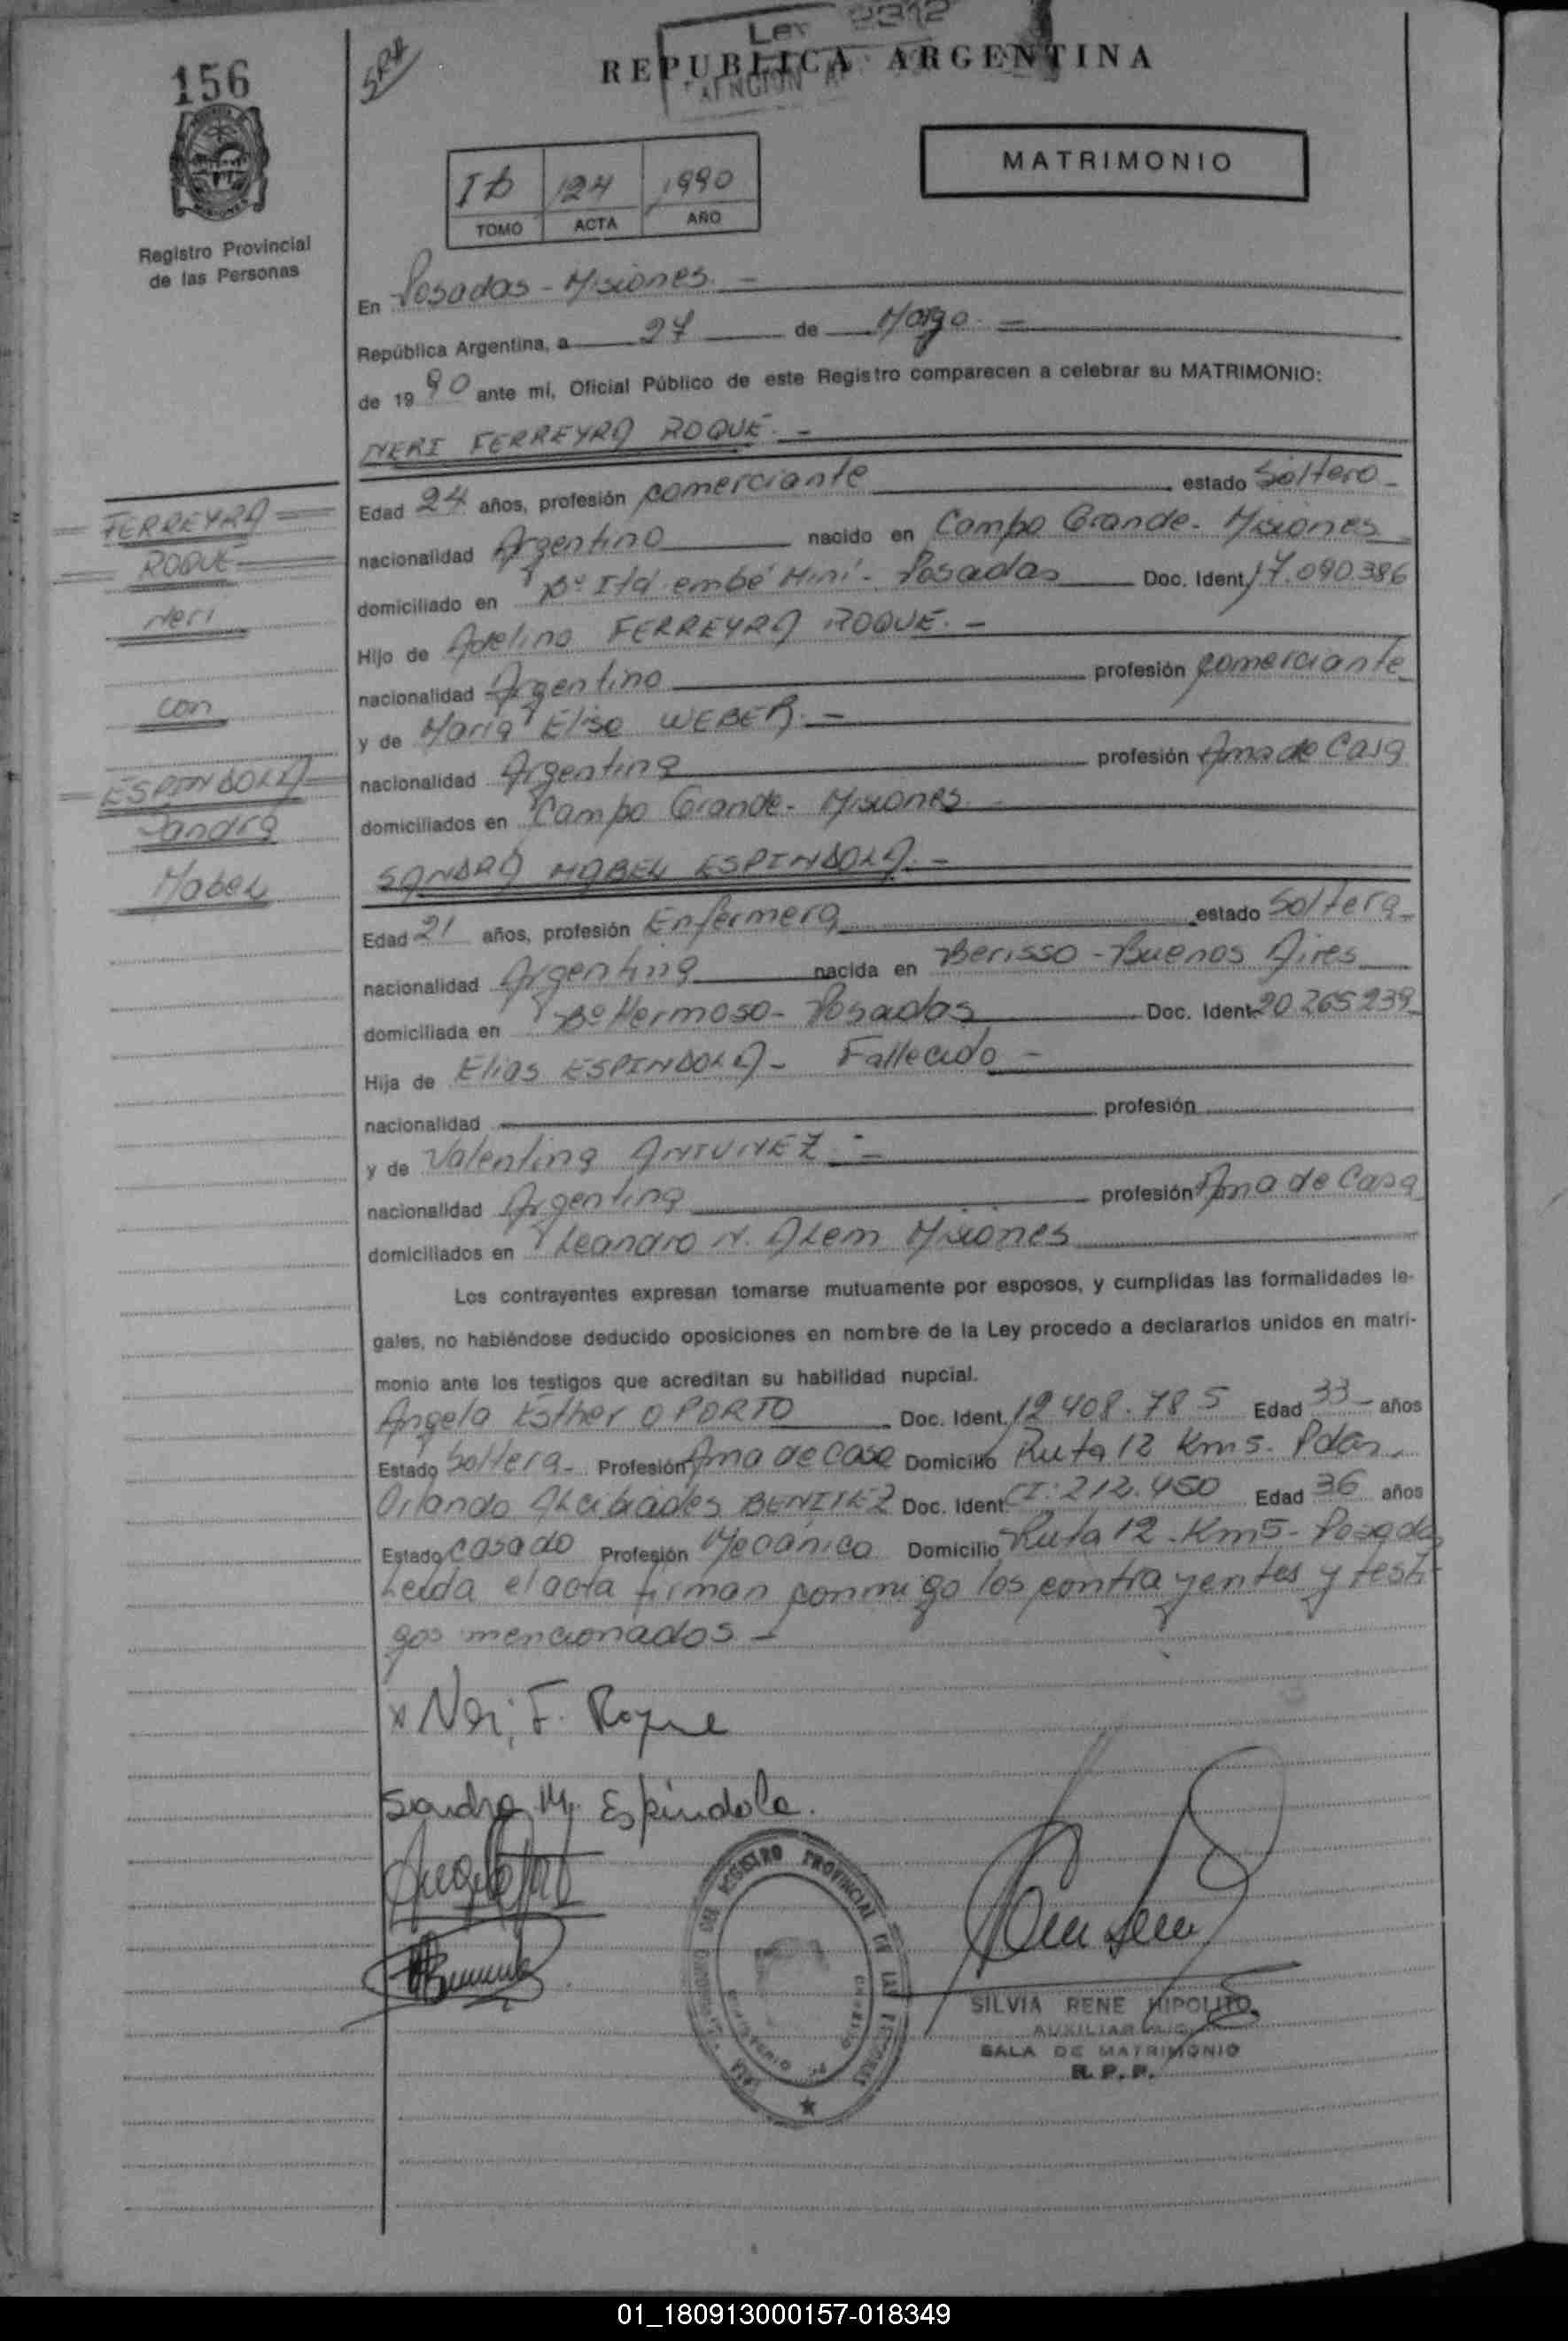 156
Ley 2312
REPUBLICA ARGENTINA
MATRIMONIO
124 1990
TOMO ACTA AÑO
Registro Provincial
de las Personas
En Posadas - Misiones. -
República Argentina, a 27 de Marzo. -
de 1990 ante mí, Oficial Público de este Registro comparecen a celebrar su MATRIMONIO:
NERI FERREYRA ROQUE. -
Edad 24 años, profesión comerciante estado Soltero -
nacionalidad Argentino nacido en Campo Grande - Misiones
domiciliado en Bº Itá embé Miní - Posadas Doc. Ident. 17.090.386
Hijo de Adelino FERREYRA ROQUE. -
nacionalidad Argentino profesión comerciante
y de María Elisa WEBER. -
nacionalidad Argentina profesión Ama de Casa
domiciliados en Campo Grande - Misiones -
SANDRA MABEL ESPINDOLA. -
Edad 21 años, profesión Enfermera estado Soltera -
nacionalidad Argentina nacida en Berisso - Buenos Aires
domiciliada en Bº Hermoso - Posadas Doc. Ident. 20.265.239
Hija de Elias ESPINDOLA - Fallecido -
nacionalidad profesión
y de Valentina ANTUNEZ. -
nacionalidad Argentina profesión Ama de Casa
domiciliados en Leandro N. ALem Misiones
Los contrayentes expresan tomarse mutuamente por esposos, y cumplidas las formalidades le-
gales, no habiéndose deducido oposiciones en nombre de la Ley procedo a declararlos unidos en matri-
monio ante los testigos que acreditan su habilidad nupcial.
Angela Esther OPORTO Doc. Ident. 12.408.785 Edad 33 años
Estado Soltera - Profesión Ama de Casa Domicilio Ruta 12 Km 5 - Pdas.
Orlando ALcibiades BENITEZ Doc. Ident. CI: 212.450 Edad 36 años
Estado casado Profesión Mecánico Domicilio Ruta 12 - Km 5 - Posadas
Leida el acta firman conmigo los contrayentes y testi-
gos mencionados -
FERREYRA
ROQUE
Neri
con
ESPINDOLA
Sandra
Mabel
x Neri F. Roque
Sandra M. Espíndola.
REGISTRO PROVINCIAL DE LAS PERSONAS
SILVIA RENE HIPOLITO
AUXILIAR
SALA DE MATRIMONIO
R. P. P.
01_180913000157-018349